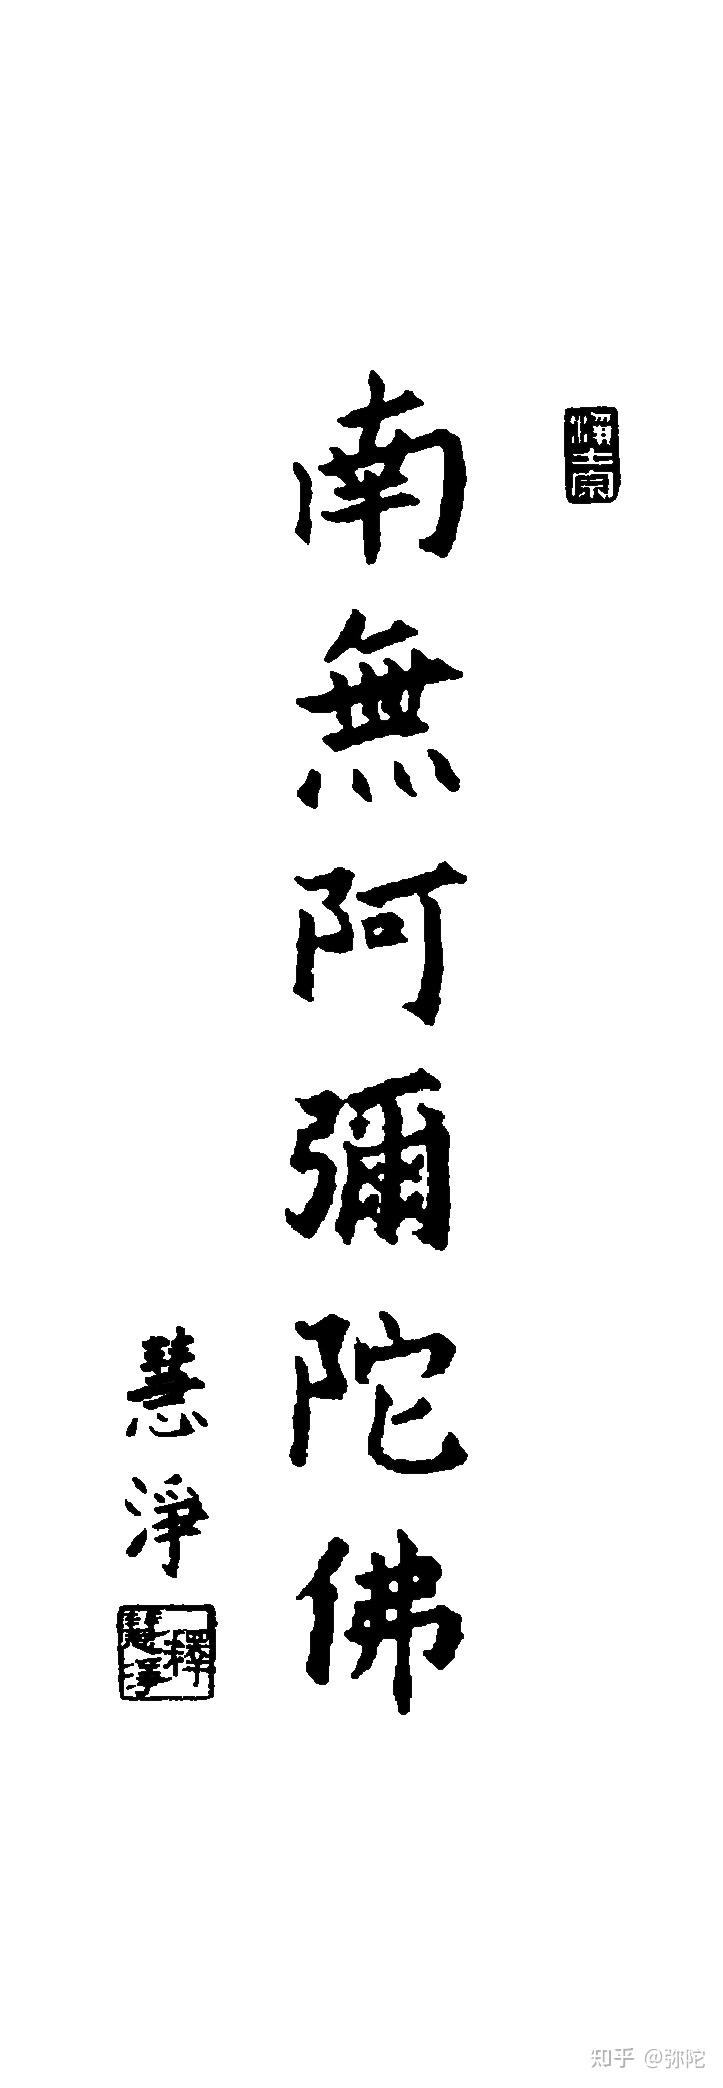 南無阿彌陀佛
慧淨
釋慧淨
知乎 @弥陀